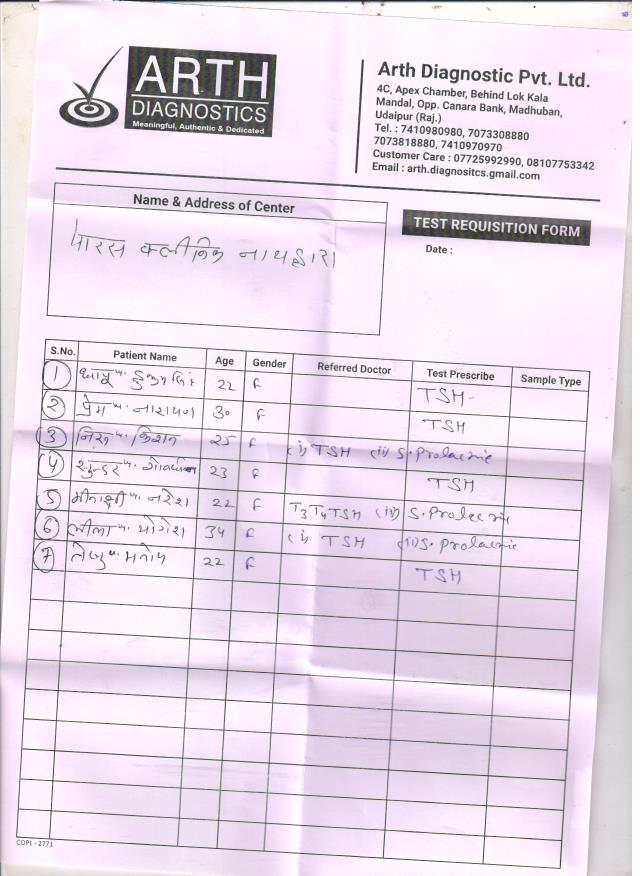 ARTH
DIAGNOSTICS
Meaningful, Authentic & Dedicated
Arth Diagnostic Pvt. Ltd.
4C, Apex Chamber, Behind Lok Kala
Mandal, Opp. Canara Bank, Madhuban,
Udaipur (Raj.)
Tel. : 7410980980, 7073308880
7073818880, 7410970970
Customer Care : 07725992990, 08107753342
Email : arth.diagnositcs.gmail.com
Name & Address of Center
पारस क्लीनिक नाथद्वारा
TEST REQUISITION FORM
Date :
S.No. Patient Name Age Gender Referred Doctor Test Prescribe Sample Type
1 22 F TSH
2 प्रेम नारायण 30 F TSH
3 किशन 25 F (i) TSH (ii) S. Prolacnie
4 23 F TSH
5 मीनाक्षी नरेश 22 F T3 T4 TSH (ii) S. Prolecnie
6 लीला योगेश 34 F (i) TSH (ii) S. Prolacnie
7 22 F TSH
COPL - 2771